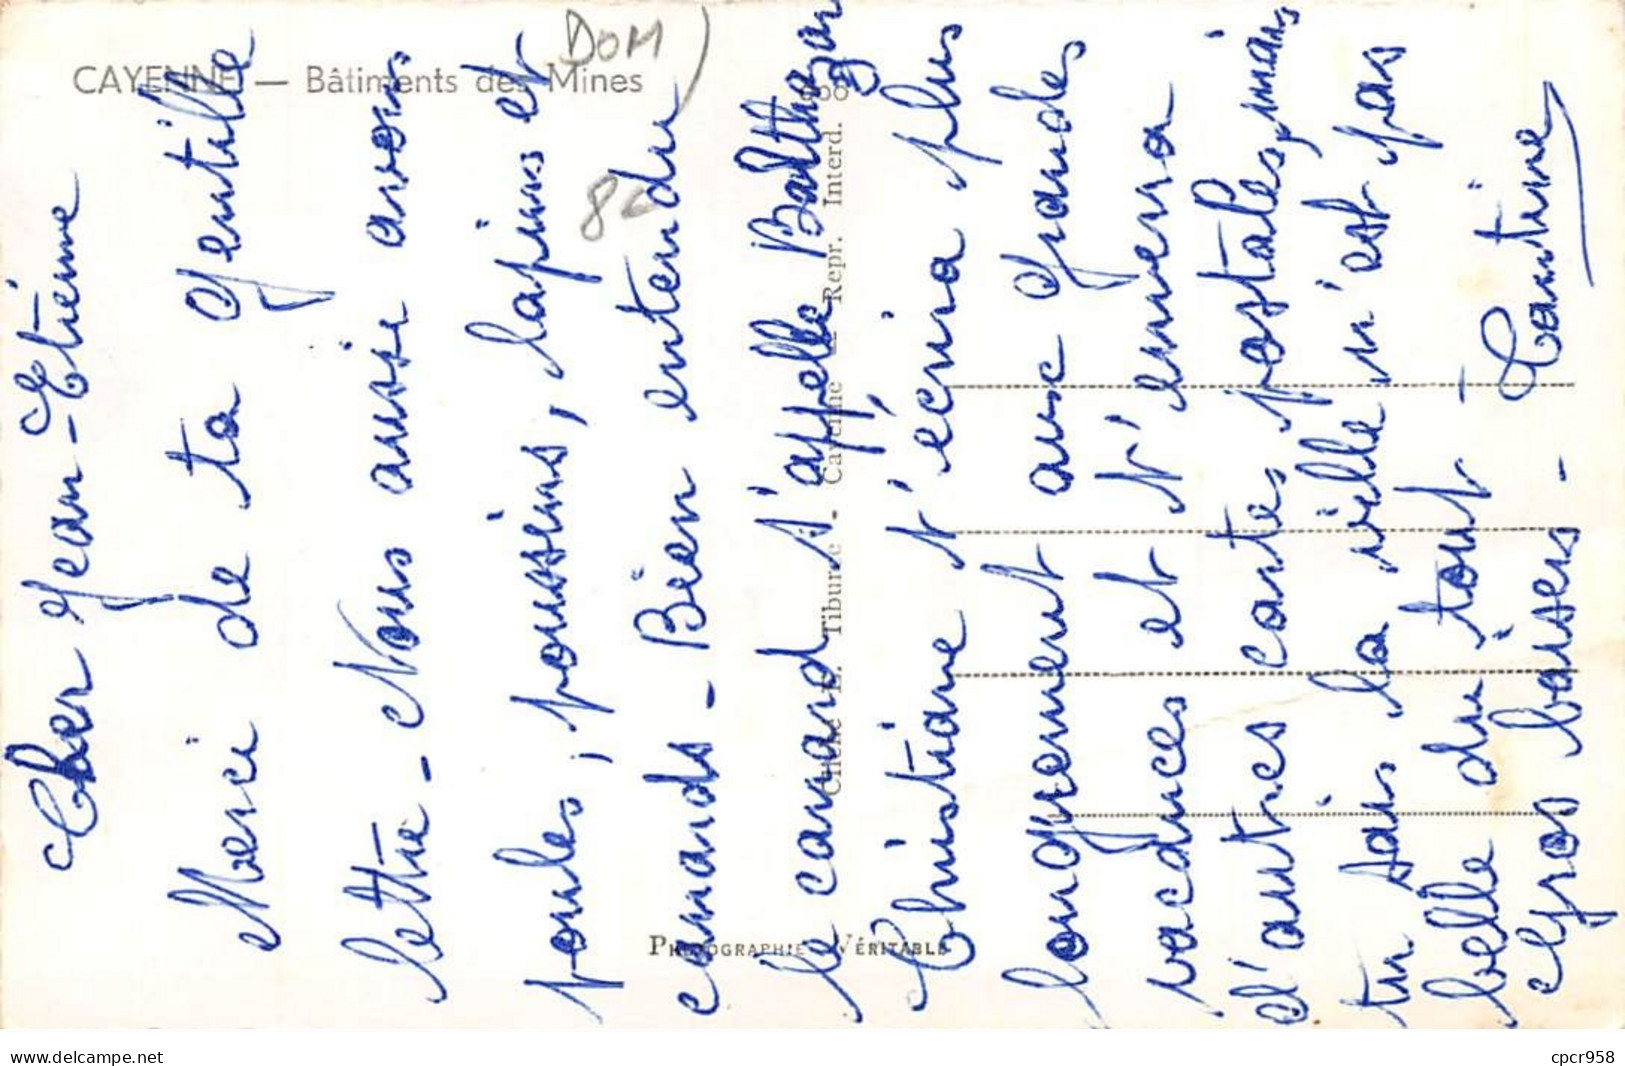 CAYENNE — Bâtiments des Mines
DOM
8€
Cher Jean-Etienne
Merci de ta gentille
lettre - Nous aussi avons
poules, poussins, lapins et
canards - Bien entendu
le canard s'appelle Balthazar
Christiane t'écrira plus
longuement aux grandes
vacances et t'enverra
d'autres cartes postales, mais
tu sais la ville n'est pas
belle du tout -
Gros baisers - Tantine
Cliché E. Tiburce - Cayenne - Repr. Interd.
PHOTOGRAPHIE VÉRITABLE
www.delcampe.net
cpcr958